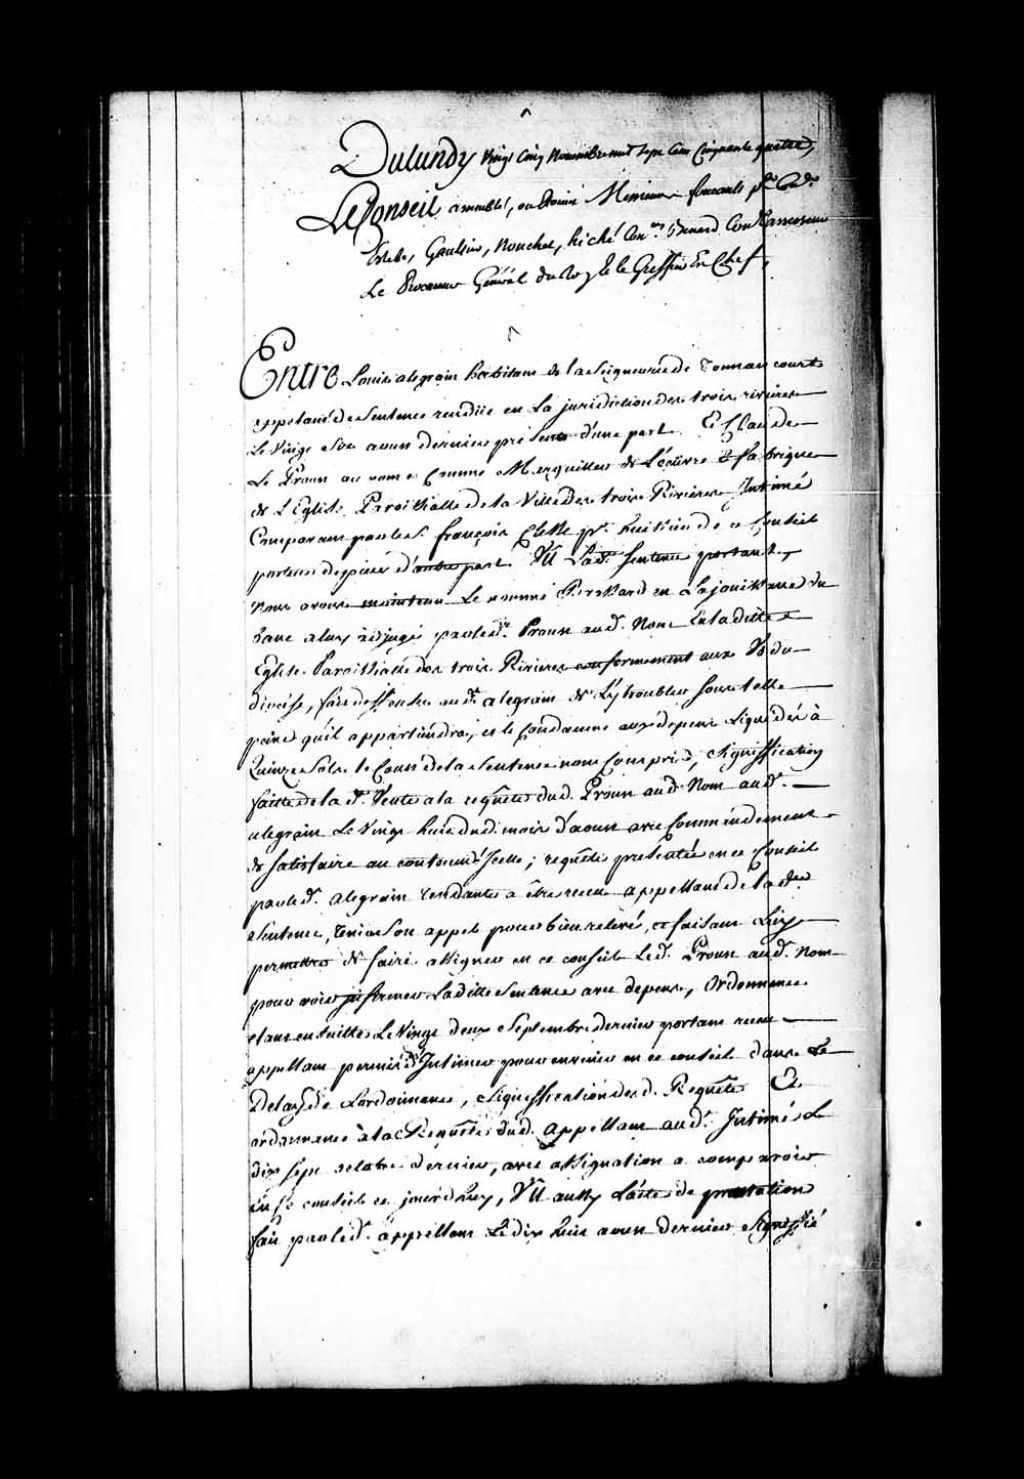 Du Lundy vingt cinq Novembre mil sept cent cinquante quatre,
Le Conseil assemblé, ou étoient Messieurs foucault pr. Conser.
Estebe, Gaultier, Nouchet, hiché Coners. Benard Coner assesseur
Le Procureur Général du Roy et le Greffier En Chef,
Entre Louis alegrain habitant de la seigneurie de Tonnancourt
appelant de sentence rendüe en la jurisdiction des trois rivieres
Le vingt six aoust dernier présent d'une part. Et Claude
Le Proust au nom et comme Marguillier de L'oeuvre et fabrique
de L'Eglise Paroissialle de la Ville des trois Rivieres Intimé
Comparant par le Sr. françois Clesse pr. huissier de ce Conseil
porteur de pieces d'autre part. Vû Lade. Sentence portant,
Nous avons maintenu Le nommé Brossard en La jouissance du
banc a luy adjugé par led. Proust aud. Nom En la ditte
Eglise Paroissialle des trois Rivieres conformement aux Us du
diocése, fait deffenses aud. alegrain de L'y troubler sous telle
peine qu'il appartiendra, et le condamne aux depens Liquidés à
Quinze sols le Cout de la sentence non Compris, Signiffication
faitte de la de. Sentence a la requête dud. Proust aud. Nom aud.
alegrain Le vingt huit dud. mois d'aoust avec Commandement
de satisfaire au contenu d'Icelle; requête presentée en ce Conseil
par led. alegrain tendante a être receu appellant de lade.
sentence, tenir son appel pour bien relevé, et faisant Luy
permettre de faire assigner en ce conseil Led. Proust aud. Nom
pour voir infirmer Laditte sentence avec depens, Ordonnance
etant ensuitte Le vingt deux Septembre dernier portant receu
appellant permis d'Intimer pour en venir en ce conseil dans Le
Delay de Lordonnance, Signiffication desd. Requête Et
ordonnance à la Requête dud. appellant aud. Intimé Le
dix sept octobre dernier, avec assignation a comparoir
En ce conseil ce jourd'huy, Vû aussy L'acte de prestation
fait par led. appellant Le dix huit aoust dernier Signiffié